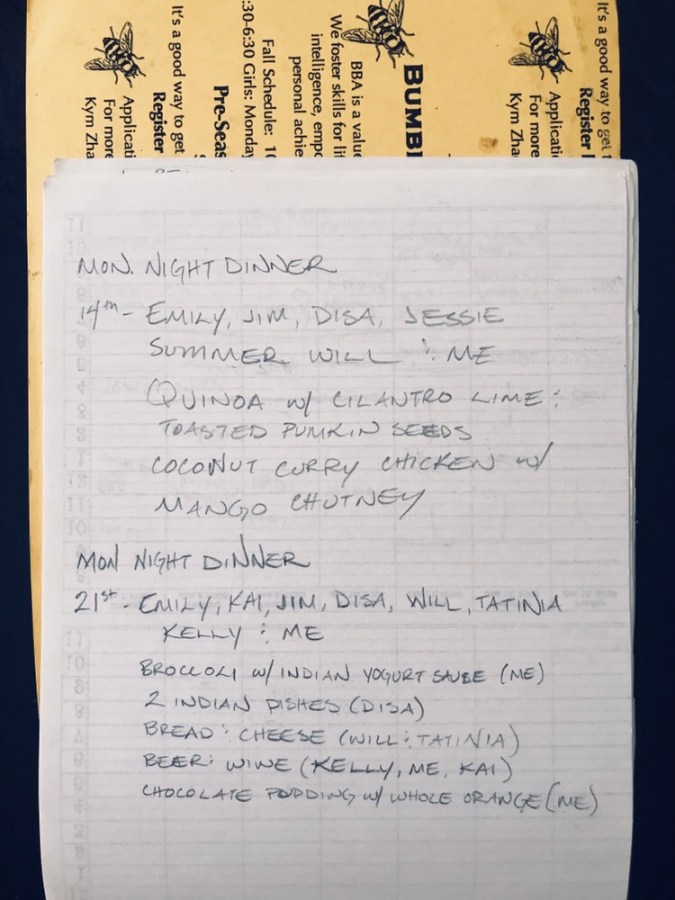 It's a good way to get
Register
Applicati
For more
Kym Zha
Pre-Seas
Fall Schedule: 1
:30-6:30 Girls: Monday
BBA is a value
We foster skills for li
intelligence, empo
personal achie
BUMB
It's a good way to get
Register
Applicatio
For more
Kym Zha
MON. NIGHT DINNER
14th - EMILY, JIM, DISA, JESSIE
SUMMER WILL : ME
QUINOA w/ CILANTRO LIME :
TOASTED PUMKIN SEEDS
COCONUT CURRY CHICKEN w/
MANGO CHUTNEY
MON NIGHT DINNER
21st - EMILY, KAI, JIM, DISA, WILL, TATINIA
KELLY : ME
BROCCOLI w/ INDIAN YOGURT SAUSE (ME)
2 INDIAN DISHES (DISA)
BREAD : CHEESE (WILL : TATINIA)
BEER : WINE (KELLY, ME, KAI)
CHOCOLATE PUDDING w/ WHOLE ORANGE (ME)